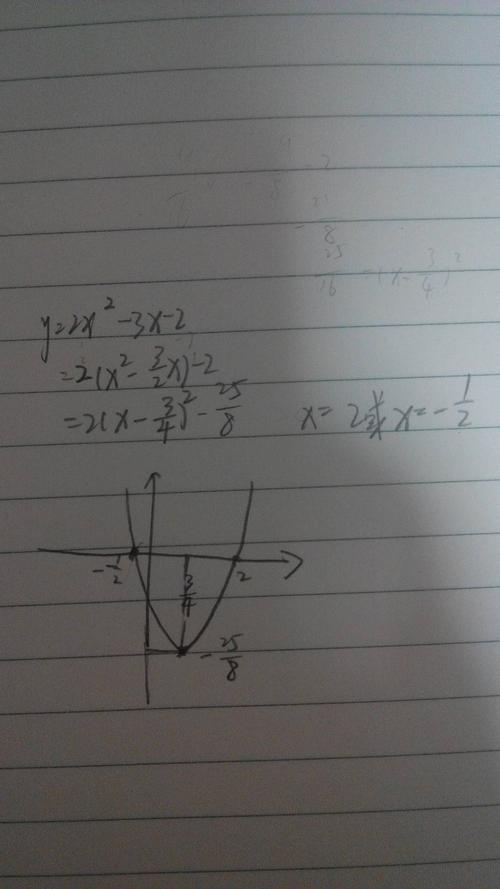 y=2x²-3x-2
=2(x²-3/2x)-2
=2(x-3/4)²-25/8 x=2或x=-1/2
-1/2 3/4 2
-25/8